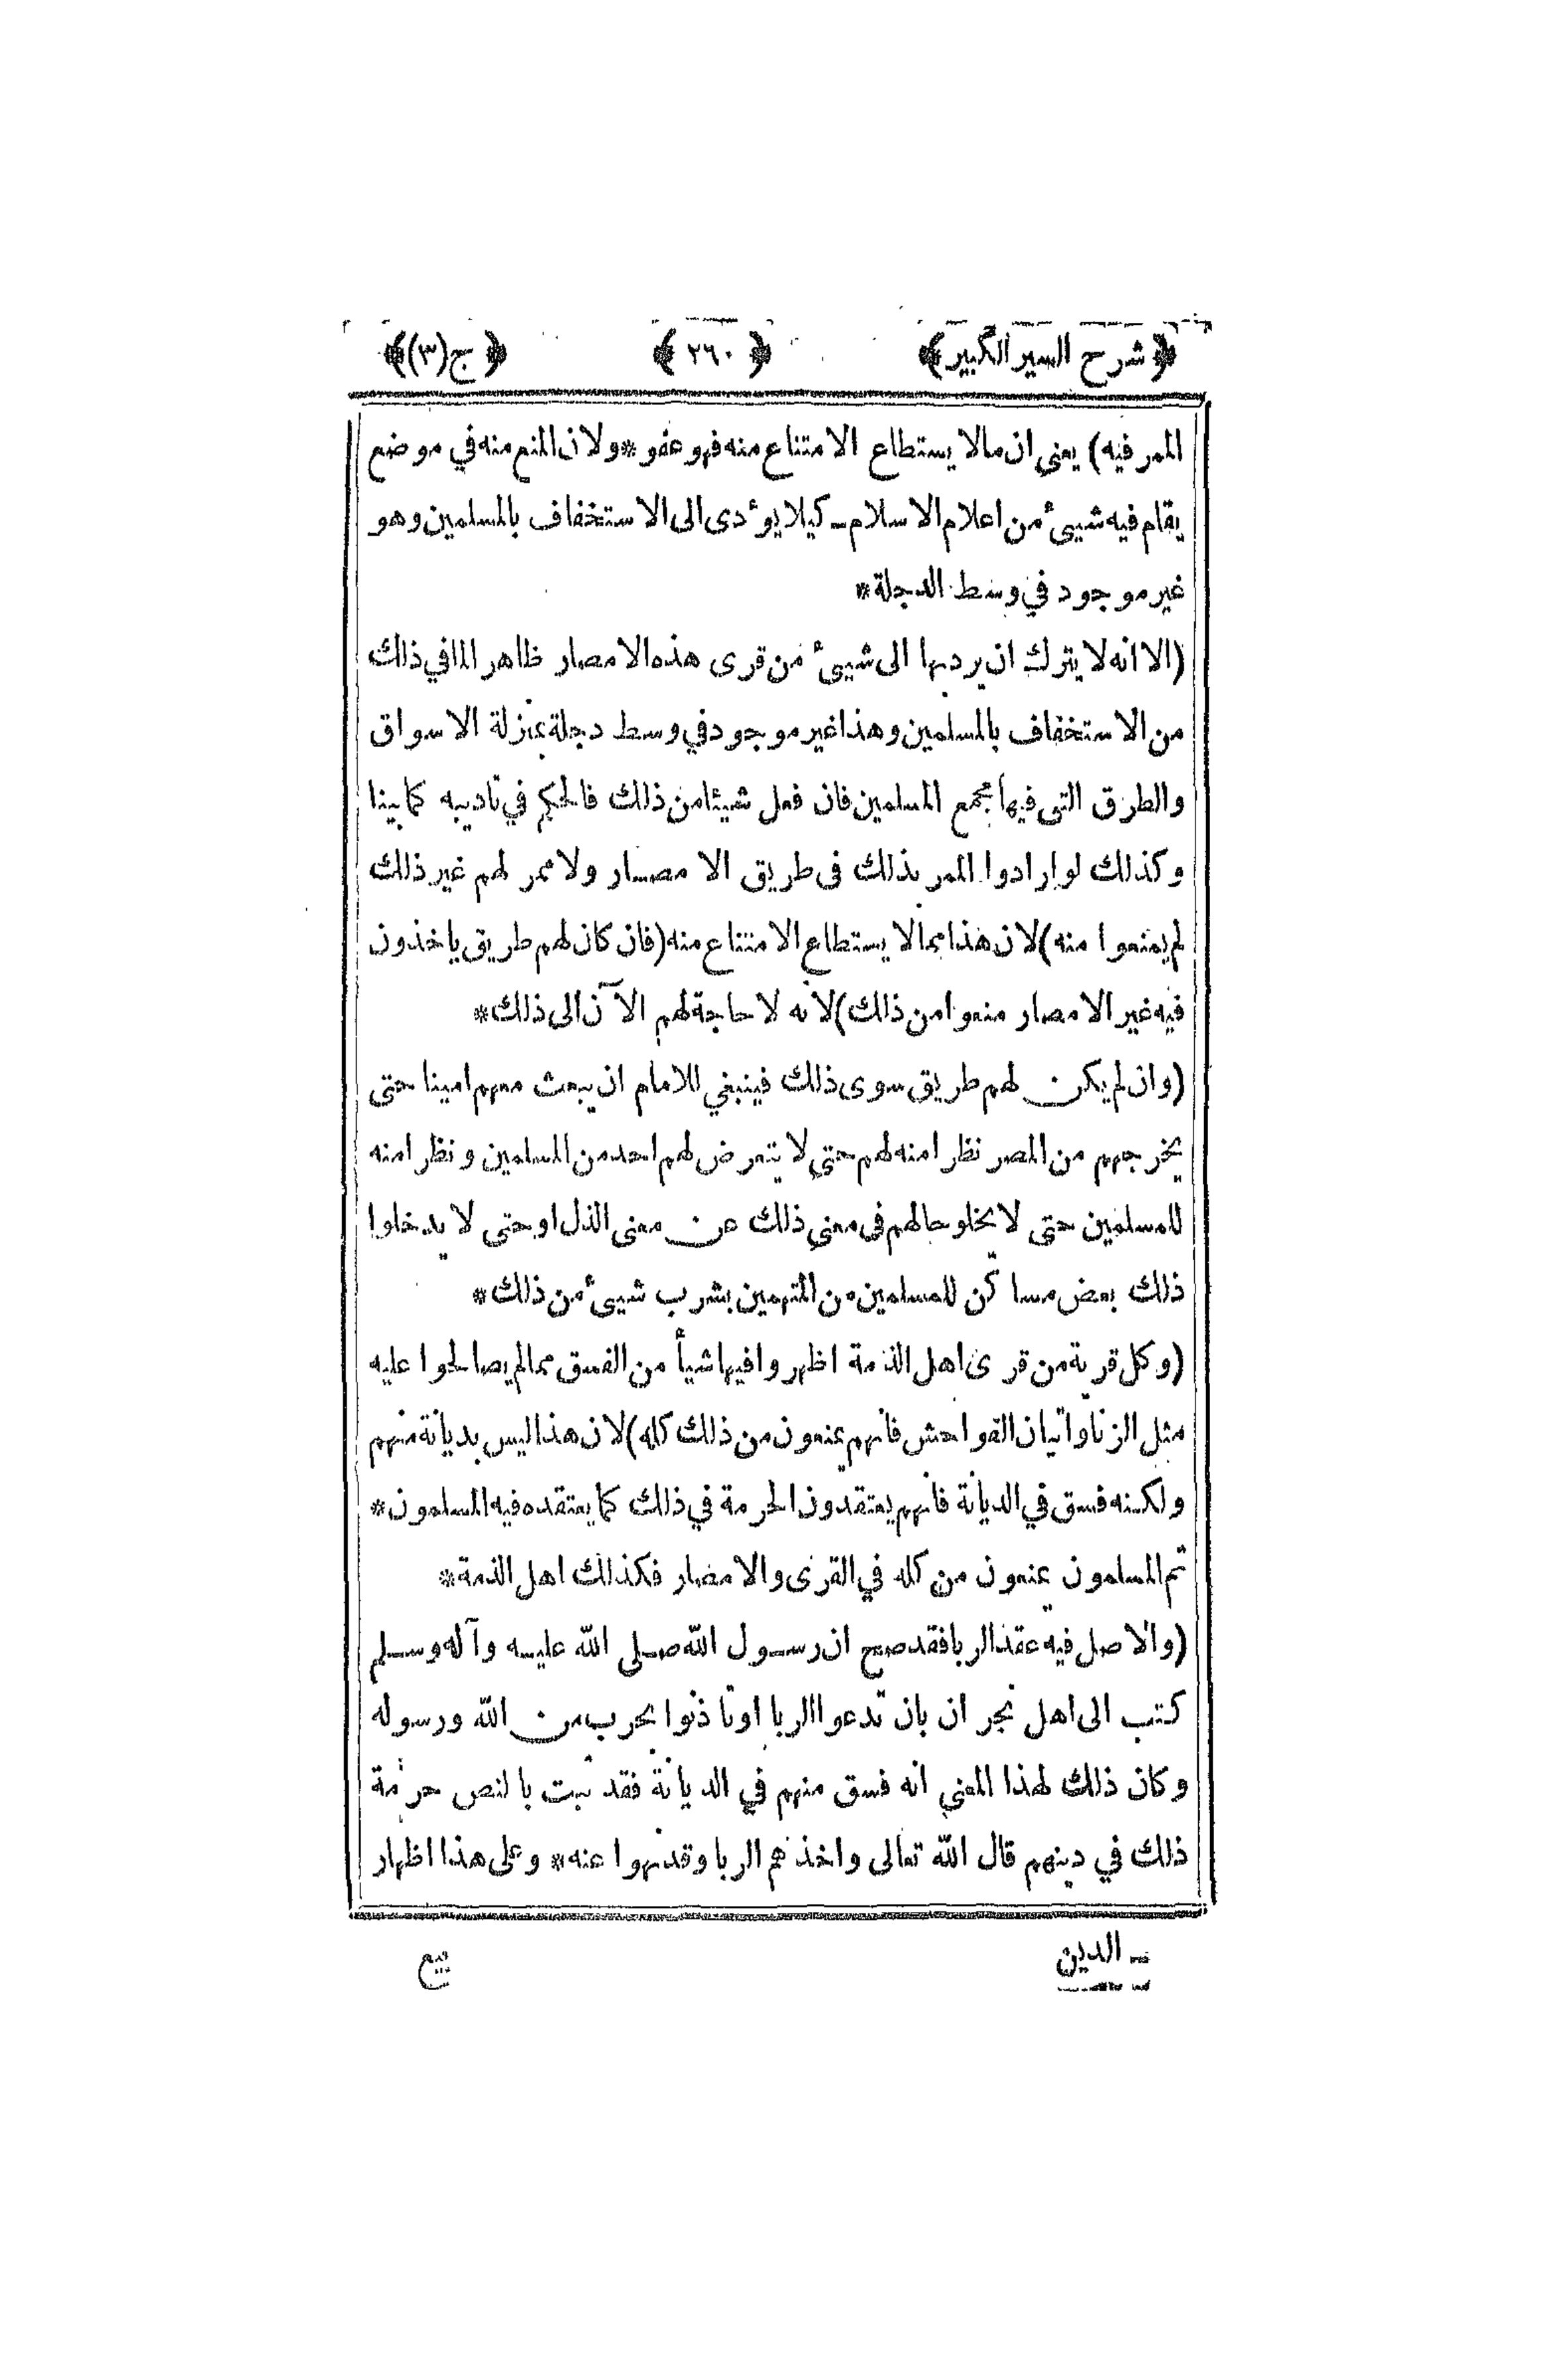 ﴿شرح السير الكبير﴾ ﴿٢٦٠﴾ ﴿ج(٣)﴾
الممر فيه) يعنى ان مالا يستطاع الامتناع منه فهو عفو * ولان المنع منه في موضع
يقام فيه شيئ من اعلام الاسلام ـ كيلا يوءدى الى الاستخفاف بالمسلمين وهو
غير موجود في وسط الدجلة *
(الا انه لا يترك ان يرد بها الى شيئ من قرى هذه الامصار ظاهر الما في ذلك
من الاستخفاف بالمسلمين وهذا غير موجود في وسط دجلة بمنزلة الاسواق
والطرق التى فيها مجمع المسلمين فان فعل شيئا من ذلك فالحكم في تاديبه كما بينا
وكذلك لو ارادوا الممر بذلك فى طريق الامصار ولا ممر لهم غير ذلك
لم يمنعوا منه) لان هذا مما لا يستطاع الامتناع منه (فان كان لهم طريق ياخذون
فيه غير الامصار منعوا من ذلك) لانه لا حاجة لهم الآن الى ذلك *
(وان لم يكن لهم طريق سوى ذلك فينبغي للامام ان يبعث معهم امينا حتى
يخرجهم من المصر نظرا منه لهم حتى لا يتعرض لهم احد من المسلمين ونظرا منه
للمسلمين حتى لا يخلو حالهم فى معنى ذلك عن معنى الذل او حتى لا يدخلوا
ذلك بعض مساكن للمسلمين من المتهمين بشرب شيئ من ذلك *
(وكل قرية من قرى اهل الذمة اظهروا فيها شيأ من الفسق مما لم يصالحوا عليه
مثل الزنا واتيان الفواحش فانهم يمنعون من ذلك كله) لان هذا ليس بديانة منهم
ولكنه فسق في الديانة فانهم يعتقدون الحرمة في ذلك كما يعتقده فيه المسلمون *
ثم المسلمون يمنعون من كله في القرى والامصار فكذلك اهل الذمة *
(والاصل فيه عقد الربا فقد صح ان رسول الله صلى الله عليه وآله وسلم
كتب الى اهل نجران بان تدعوا الربا او تاذنوا بحرب من الله ورسوله
وكان ذلك لهذا المعنى انه فسق منهم في الديانة فقد ثبت بالنص حرمة
ذلك في دينهم قال الله تعالى واخذهم الربا وقد نهوا عنه * وعلى هذا اظهار
ـ الدين
بيع